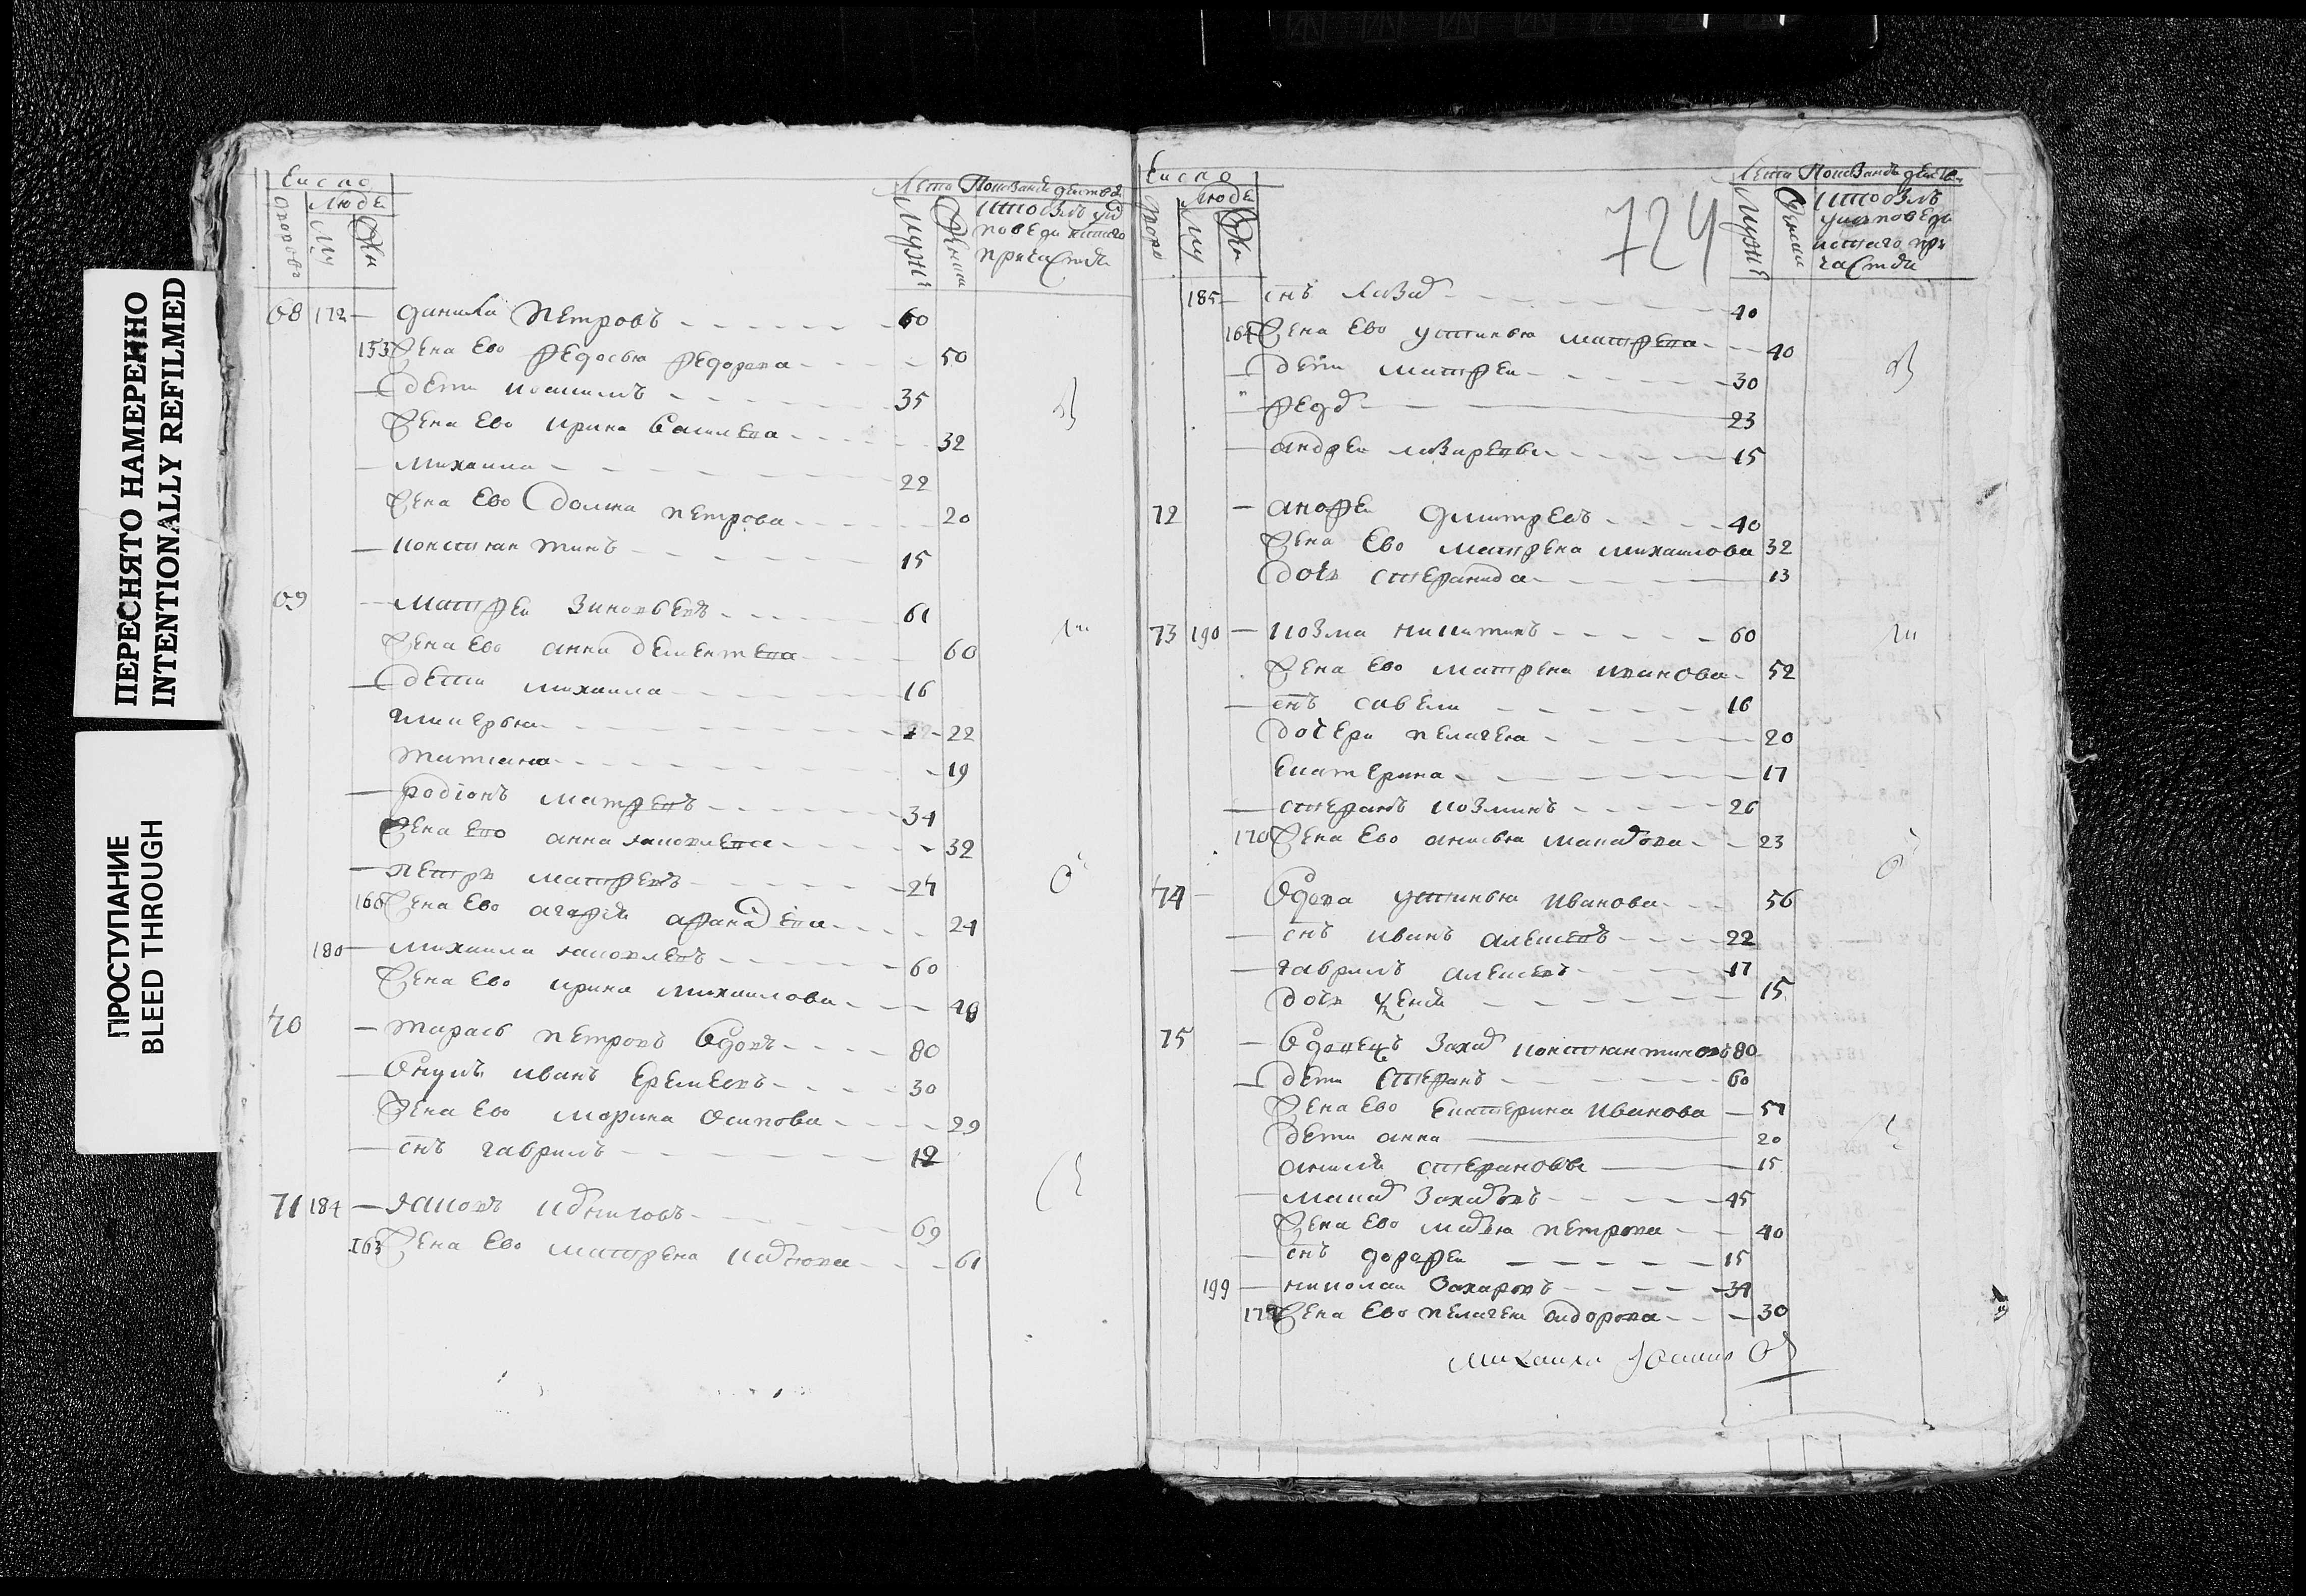 ПЕРЕСНЯТО НАМЕРЕННО
INTENTIONALLY REFILMED
ПРОСТУПАНИЕ
BLEED THROUGH
Число
Люде
Лета
Мужс
68 172 — данила петровъ 60
153 жена ево федосья федорова 50
— дети 35
жена ево ирина василева 32
— михаила 22
жена ево домна петрова 20
— констянтинъ 15
69 — матфеи зиновьевъ 61
жена ево анна дементева 60
— дети михаила 16
гликерья 22
татиана 19
— родіонъ матфевъ 34
жена ево анна яковлева 32
— петръ матфевъ 24
160 жена ево агафія афанасева 24
180 — михаила яковлевъ 60
жена ево ирина михаилова 48
70 — тарасъ петровъ вдовъ 80
— внукъ иванъ еремеевъ 30
жена ево марина осипова 29
— снъ гаврилъ 12
71 184 — яковъ 69
163 жена ево матрена 61
724
Число
Люде
Лета
Мужс
185 — снъ лазар 40
164 жена ево устинья матфева 40
— дети матфеи 30
— федор 23
— андреи лазаревы 15
72 — андреи дмитревъ 40
жена ево матрена михаилова 32
дочь стефанида 13
73 190 — козма никитинъ 60
жена ево матрена иванова 52
— снъ савели 16
дочери пелагея 20
екатерина 17
— стефанъ козминъ 26
170 жена ево анисья макарова 23
74 — вдова устинья иванова 56
— снъ иванъ алексевъ 22
— гаврилъ алексевъ 17
дочь ксенія 15
75 — вдовецъ захар констянтиновъ 80
— дети стефанъ 60
жена ево екатерина иванова 57
дети анна 20
стефановы 15
— макар захаровъ 45
жена ево марья петрова 40
— снъ дорофеи 15
199 — николаи захаровъ 34
178 жена ево пелагея сидорова 30
михаила